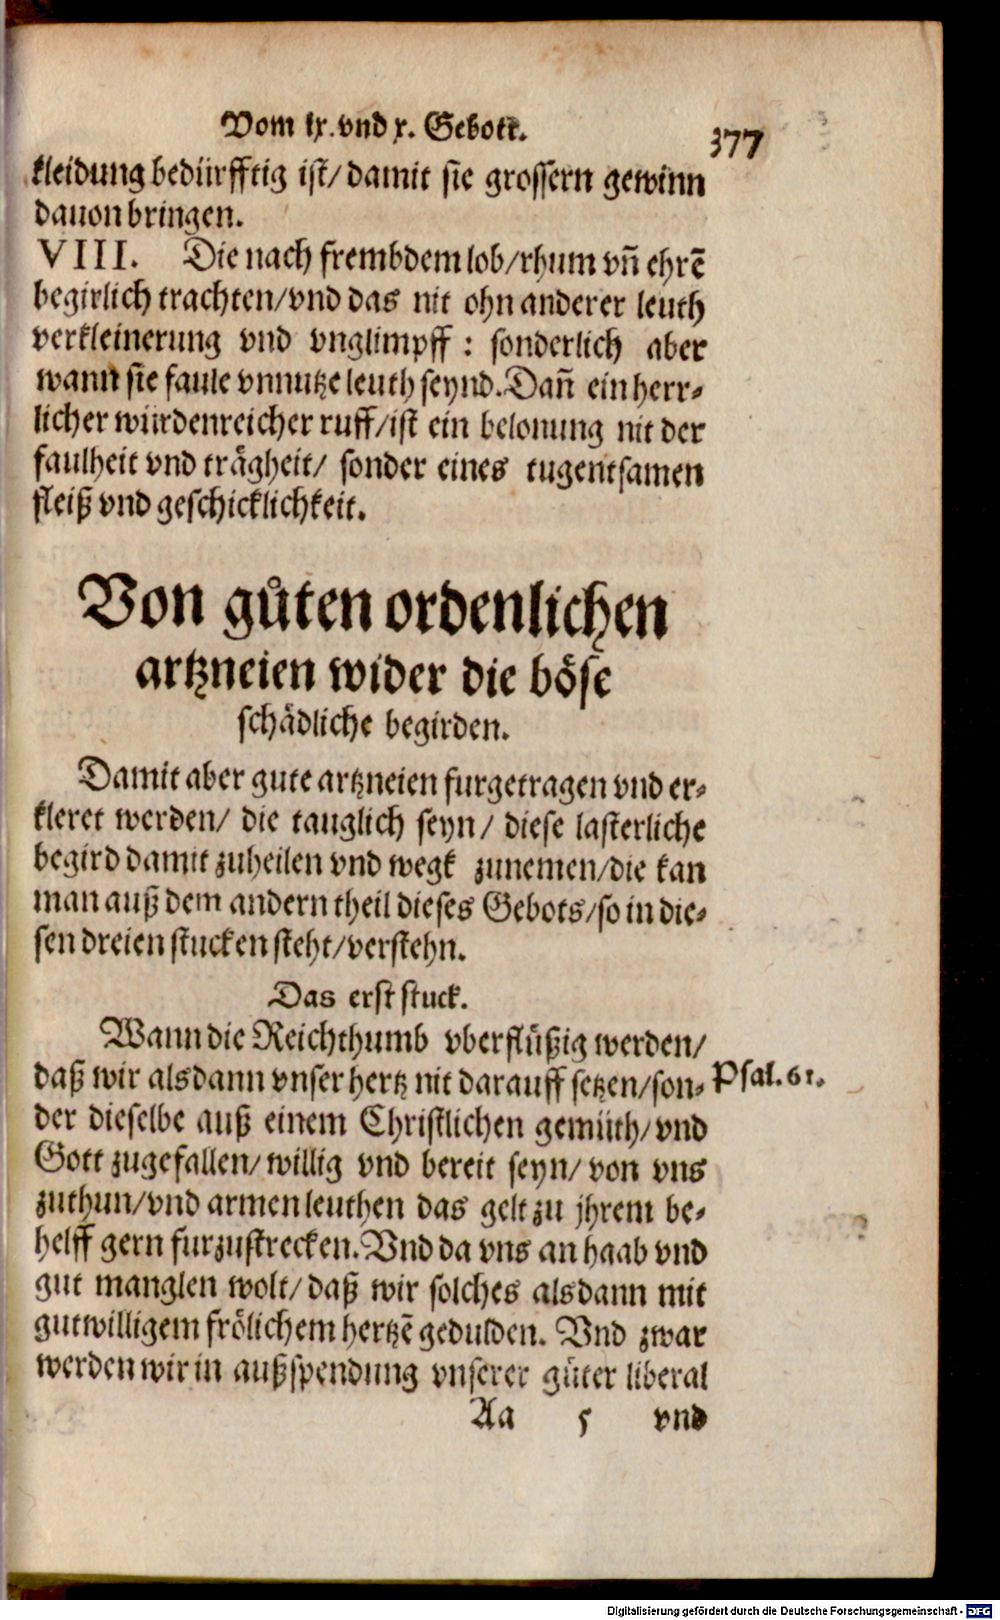 Vom ix. vnd x. Gebott. 377
kleidung bedürfftig ist/ damit sie grossern gewinn
dauon bringen.
VIII. Die nach frembdem lob/rhum vñ ehrē
begirlich trachten/vnd das nit ohn anderer leuth
verkleinerung vnd vnglimpff : sonderlich aber
wann sie faule vnnutze leuth seynd. Dañ ein herr⸗
licher würdenreicher ruff/ist ein belonung nit der
faulheit vnd trägheit/ sonder eines tugentsamen
fleiß vnd geschicklichkeit.
Von gůten ordenlichen
artzneien wider die böse
schädliche begirden.
Damit aber gute artzneien furgetragen vnd er⸗
kleret werden/ die tauglich seyn/ diese lasterliche
begird damit zuheilen vnd wegk zunemen/die kan
man auß dem andern theil dieses Gebots/so in die⸗
sen dreien stucken steht/verstehn.
Das erst stuck.
Wann die Reichthumb vberflüßig werden/
daß wir alsdann vnser hertz nit darauff setzen/son⸗ Psal. 61.
der dieselbe auß einem Christlichen gemüth/vnd
Gott zugefallen/ willig vnd bereit seyn/ von vns
zuthun/vnd armen leuthen das gelt zu jhrem be⸗
helff gern furzustrecken. Vnd da vns an haab vnd
gut manglen wolt/ daß wir solches alsdann mit
gutwilligem frölichem hertzē gedulden. Vnd zwar
werden wir in außspendung vnserer güter liberal
Aa 5 vnd
Digitalisierung gefördert durch die Deutsche Forschungsgemeinschaft - DFG